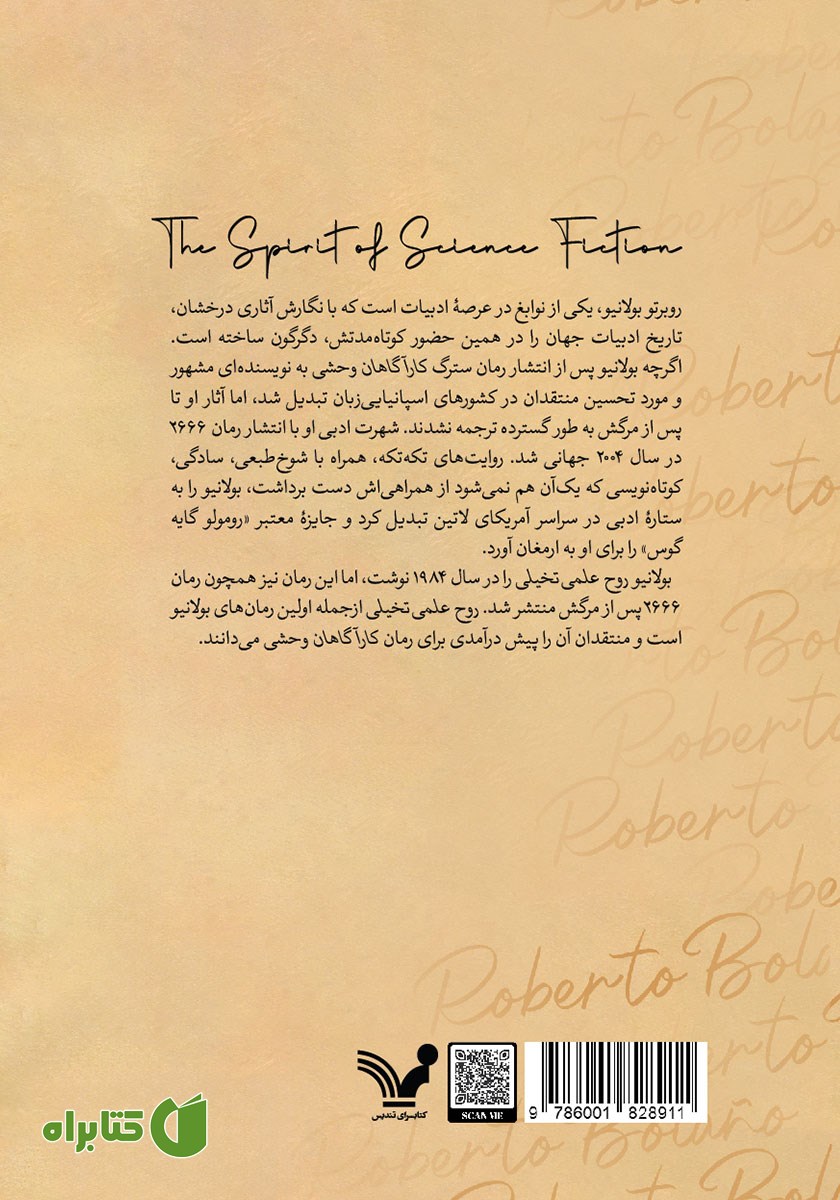 The Spirit of Science Fiction
روبرتو بولانیو، یکی از نوابغ در عرصهٔ ادبیات است که با نگارش آثاری درخشان،
تاریخ ادبیات جهان را در همین حضور کوتاه‌مدتش، دگرگون ساخته است.
اگرچه بولانیو پس از انتشار رمان سترگ کارآگاهان وحشی به نویسنده‌ای مشهور
و مورد تحسین منتقدان در کشورهای اسپانیایی‌زبان تبدیل شد، اما آثار او تا
پس از مرگش به طور گسترده ترجمه نشدند. شهرت ادبی او با انتشار رمان ۲۶۶۶
در سال ۲۰۰۴ جهانی شد. روایت‌های تکه‌تکه، همراه با شوخ‌طبعی، سادگی،
کوتاه‌نویسی که یک‌آن هم نمی‌شود از همراهی‌اش دست برداشت، بولانیو را به
ستارهٔ ادبی در سراسر آمریکای لاتین تبدیل کرد و جایزهٔ معتبر «رومولو گایه
گوس» را برای او به ارمغان آورد.
بولانیو روح علمی‌تخیلی را در سال ۱۹۸۴ نوشت، اما این رمان نیز همچون رمان
۲۶۶۶ پس از مرگش منتشر شد. روح علمی‌تخیلی ازجمله اولین رمان‌های بولانیو
است و منتقدان آن را پیش درآمدی برای رمان کارآگاهان وحشی می‌دانند.
Roberto
Roberto Bola
Roberto
Roberto
Roberto
to Bo
Roberto
Roberto
Roberto Bola
Roberto Bolaño
کتابسرای تندیس
SCAN ME
9 786001 828911
کتابراه